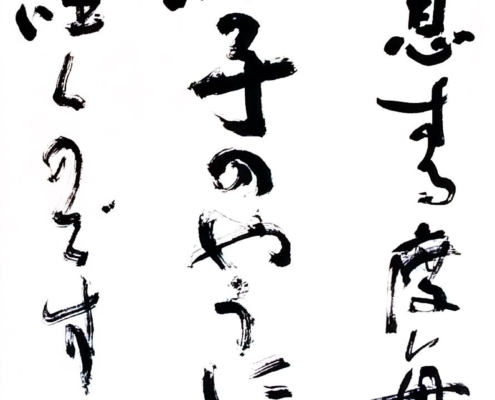 息する度毎
子のやうに
くのです